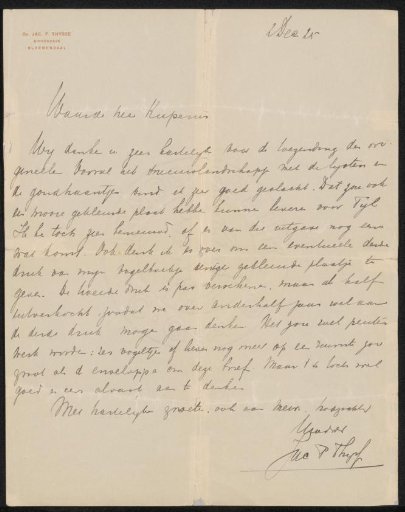 Dr. JAC. P. THYSSE
BLOEMENDAAL
2 Dec 25
Waarde heer Kuiperus
Wij danken u zeer hartelijk voor de toezending der
Vooral het duinenlandschap met de lijsters en
de goudhaantjes vind ik zeer goed geslaagd. Dat zou ook
een mooie gekleurde plaat hebben kunnen leveren voor
Ik ben toch zeer benieuwd, of er van die uitgave nog eens
wat komt. Ook denk ik er over om een eventueele derde
druk van mijn eenige gekleurde plaatjes te
geven. De tweede druk is pas verschenen, maar al half
uitverkocht, zoodat we over anderhalf jaar wel aan
de derde druk mogen gaan denken. Het zou wel peuter
werk worden: zes vogeltjes of liever nog meer op een ruimte zoo
groot als de enveloppe om deze brief. Maar 't is toch wel
goed er eens alvast aan te denken.
Met hartelijke groeten, ook aan Mevr., hoogachtend
Jac P Thysse